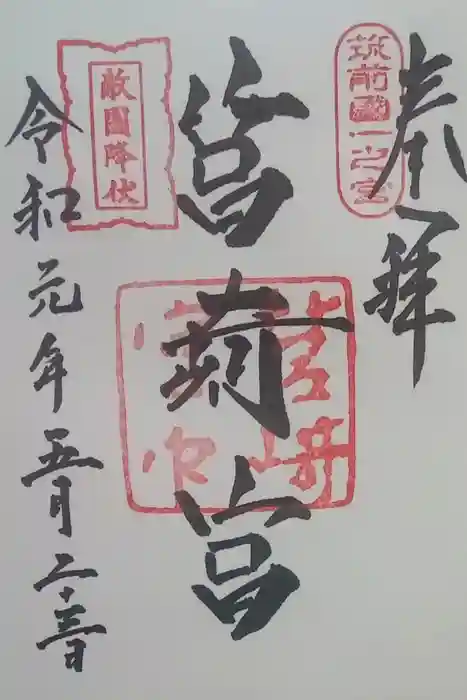 奉拝
筑前國一之宮
筥崎宮
筥崎宮印
敵國降伏
令和元年五月二十三日